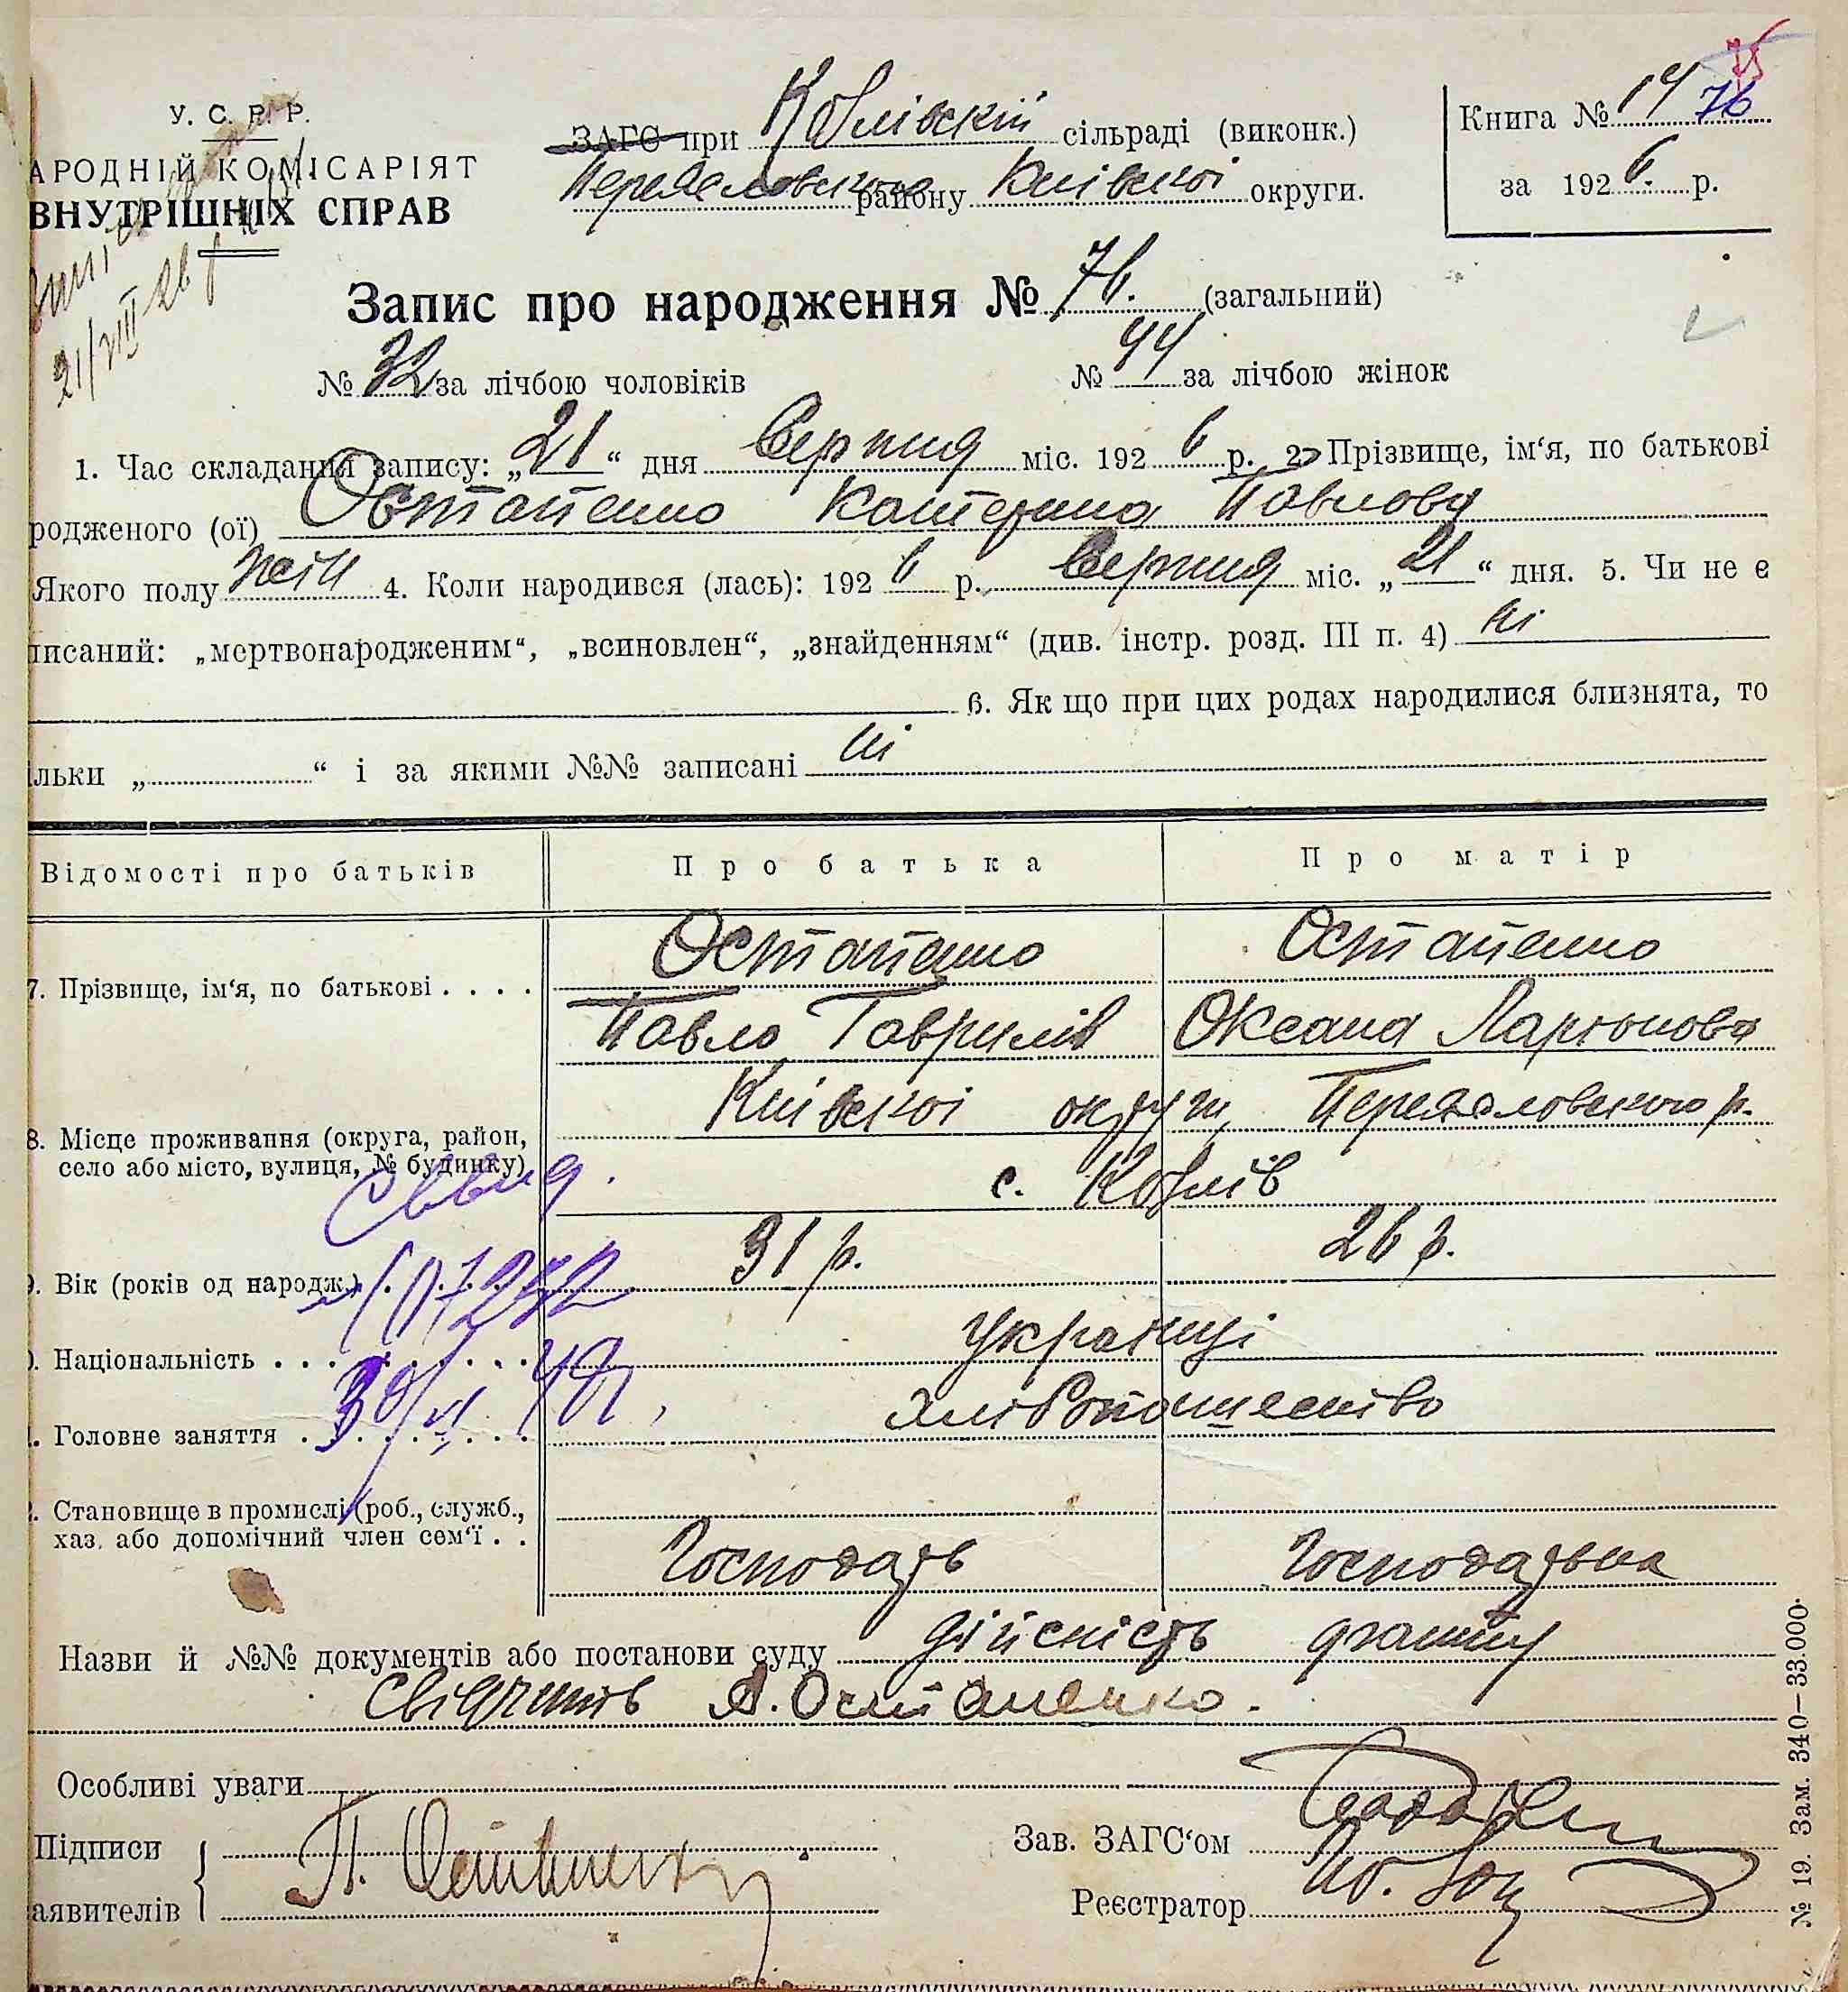 У. С. Р. Р.
АРОДНІЙ КОМІСАРІЯТ
ВНУТРІШНІХ СПРАВ
21/VIII 26 р
ЗАГС при Козлівскій сільраді (виконк.)
Переяславського району Київської округи.
Книга № 14 76
75
за 1926 р.
Запис про народження № 76. (загальний)
№ 32 за лічбою чоловіків № 44 за лічбою жінок
1. Час складання запису: „21“ дня Серпня міс. 1926 р. 2. Прізвище, ім‘я, по батькові
родженого (ої) Остапенко Катерина Павлова
Якого полу жін 4. Коли народився (лась): 1926 р. Серпня міс. „21“ дня. 5. Чи не є
писаний: „мертвонародженим“, „всиновлен“, „знайденням“ (див. інстр. розд. III п. 4) ні
6. Як що при цих родах народилися близнята, то
ільки „ “ і за якими №№ записані ні
Відомості про батьків Про батька Про матір
7. Прізвище, ім‘я, по батькові . . . . Остапенко Остапенко
Павло Гаврилів Оксана Ларіонова
8. Місце проживання (округа, район, село або місто, вулиця, № будинку) Київскої округи, Переяславського р.
с. Козлів
9. Вік (років од народж.) 31 р. 26 р.
Національність . . . Українці
Головне заняття . . . хліборобство
Становище в промислі (роб., служб.,
хаз. або допомічний член сем‘ї . . Господарь Господарька
Назви й №№ документів або постанови суду дійсність факту
свідчить А. Остапенко.
Особливі уваги
Підписи
аявителів П. Остапенко
Зав. ЗАГС‘ом
Реєстратор
№ 19. Зам. 340—33.000.